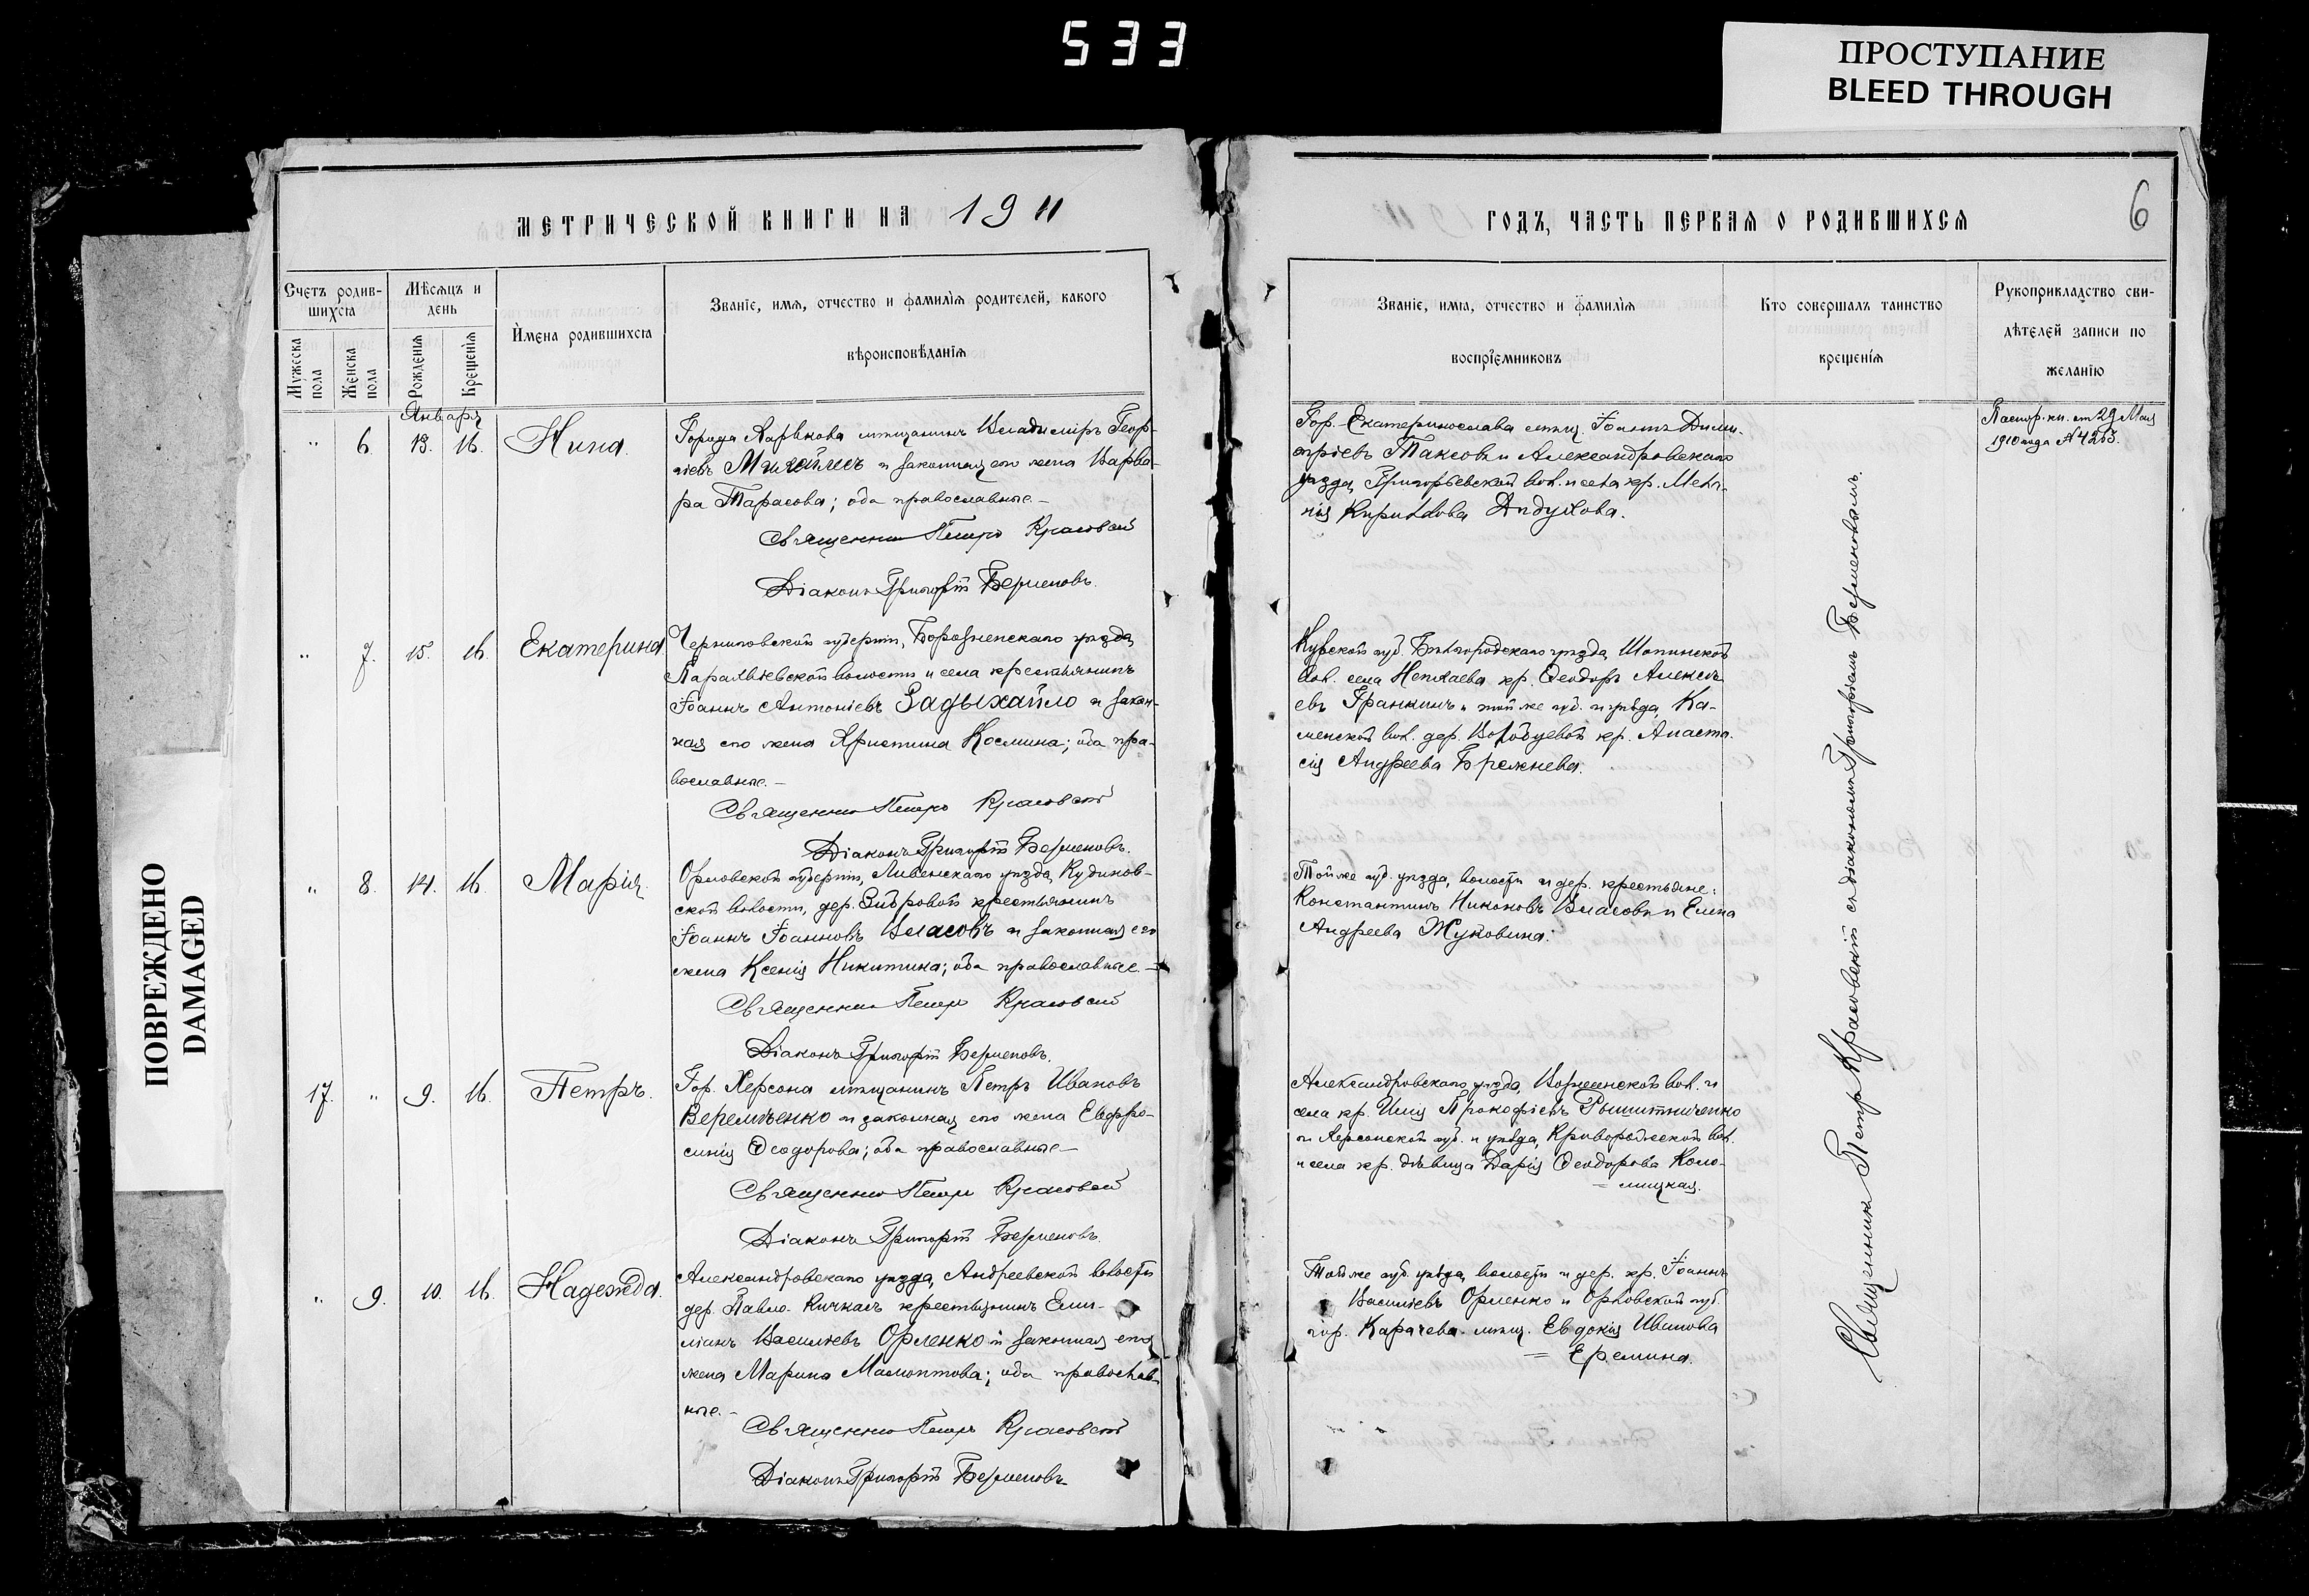 533
ПРОСТУПАНИЕ
BLEED THROUGH
ПОВРЕЖДЕНО
DAMAGED
МЕТРИЧЕСКОЙ КНИГИ НА 1911
Счетъ родив-
шихся
Мужеска
пола
Женска
пола
Мѣсяцъ и
день
Рожденія
Крещенія
Имена родившихся
Званіе, имя, отчество и фамилія родителей, какого
вѣроисповѣданія
Январь
" 6. 13. 16. Нина.
Города Харькова мѣщанинъ Владиміръ Геор-
гіевъ и законная его жена Варва-
ра Тарасова; оба православные.—
Священникъ Петръ Красовскій
Діаконъ Григорій Берменовъ.
" 7. 15. 16. Екатерина
Черниговской губерніи, Борозненскаго уѣзда,
волости и села крестьянинъ
Іоаннъ Антоніевъ Задыхайло и закон-
ная его жена Христина Космина; оба пра-
вославные.—
Священникъ Петръ Красовскій
Діаконъ Григорій Берменовъ.
" 8. 14. 16. Марія.
Орловской губерніи, Ливенскаго уѣзда, Кудинов-
ской волости, дер. крестьянинъ
Іоаннъ Іоанновъ Власовъ и законная его
жена Ксенія Никитина; оба православные.—
Священникъ Петръ Красовскій
Діаконъ Григорій Берменовъ.
17. " 9. 16. Петръ.
Гор. Херсона мѣщанинъ Петръ Ивановъ
Веремѣенко и законная его жена Евфро-
синія Ѳеодорова; оба православные—
Священникъ Петръ Красовскій
Діаконъ Григорій Берменовъ.
" 9. 10. 16. Надежда.
Александровскаго уѣзда, Андреевской волости
дер. Павло-Кичкасъ крестьянинъ Еми-
ліанъ Василіевъ Орленко и законная его
жена Марина Мамонтова; оба православ-
ные.—
Священникъ Петръ Красовскій
Діаконъ Григорій Берменовъ
ГОДЪ, ЧАСТЬ ПЕРВАЯ О РОДИВШИХСЯ
6
Званіе, имя, отчество и фамилія
воспріемниковъ
Кто совершалъ таинство
крещенія
Рукоприкладство сви-
дѣтелей записи по
желанію
Гор. Екатеринослава мѣщ. Іоаннъ Дими-
тріевъ Таксовъ и Александровскаго
уѣзда, Григорьевской вол. и села кр. Мела-
нія Кириллова
Паспор. кн. от 29 Мая
1910 года №4265.
Курской губ. Бѣлгородскаго уѣзда, Шопинской
вол. села Непхаева кр. Ѳеодоръ Алексѣ-
евъ Гранкинъ и той же губ. и уѣзда, Ка-
менской вол. дер. кр. Анаста-
сія Андреева Брежнева.
Той же губ. уѣзда, волости и дер. крестьяне:
Константинъ Никоновъ Власовъ и Елена
Андреева Жуковина.
Александровскаго уѣзда, вол. и
села кр. Илія Прокофіевъ
и Херсонской губ. и уѣзда, Криворожской вол.
и села кр. дѣвица Дарія Ѳеодорова Коло-
= мицкая.
Той же губ. уѣзда, волости и дер. кр. Іоаннъ
Василіевъ Орленко и Орловской губ.
гор. Карачева мѣщ. Евдокія Иванова
= Еремина.
Священникъ Петръ Красовскій съ діакономъ Григоріемъ Берменовымъ.